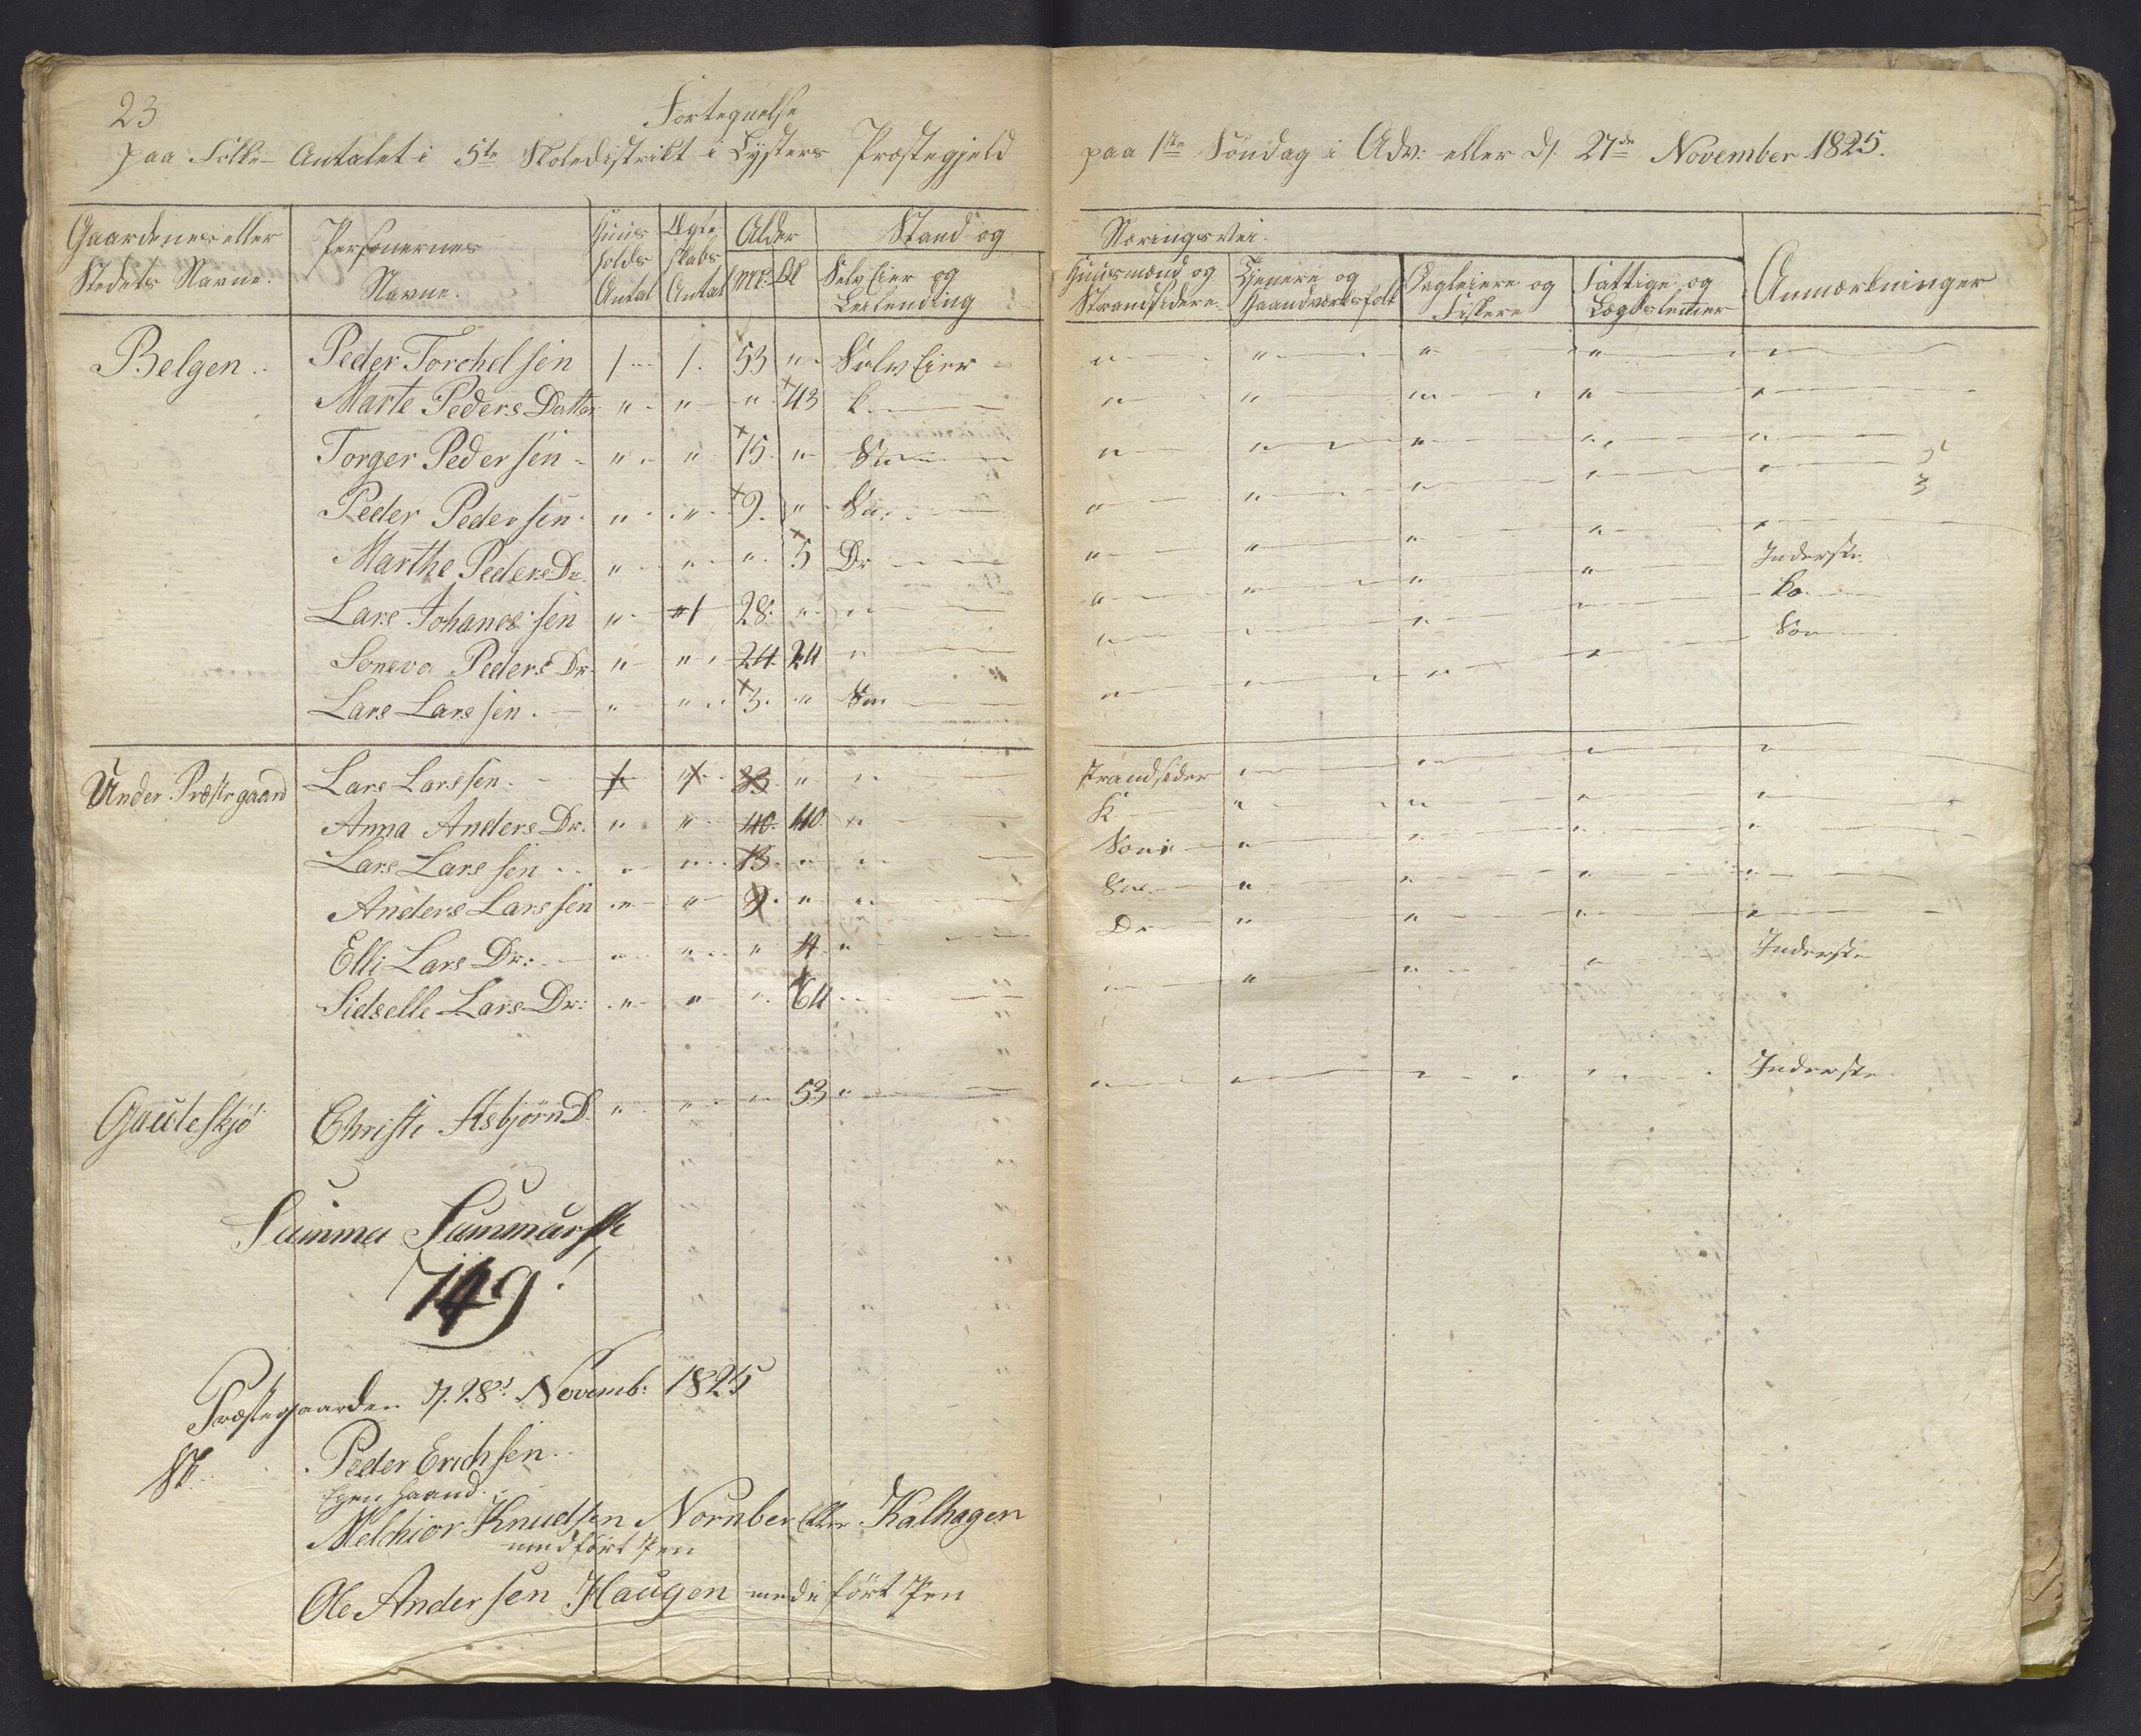 23
Fortegnelse
paa Folke- Antalet i 5te Skoledistrikt i Lysters Præstegjeld
paa 1ste Söndag i Adv: eller d. 27de November 1825.
Gaardenes eller Stedets Navne. | Personernes Navne. | Huus holds Antal | Ægte skabs Antal | Alder M: Q | Stand og Selv Eier og Leilending | Næringsvei. Huusmænd og Strandsidere | Tjenere og Haandværksfolk | Dagleiere og Fiskere | Fattige og Lægdslemmer | Anmærkninger
Belgen. Peder Torchelsen 1 1. 53 " Selv Eier " " " " "
Marte Peders Datter " " " 43 K. " " " " "
Torger Pedersen " " 15. " Sön " " " " "
Peder Pedersen " " 9. " Sön " " " " "
Marthe Peders Dr. " " " 5 Dr " " " " "
Lars Johanessen " 1 28. " " " " " " Inderste
Soneva Peders Dr. " " 24. 24 " " " " " Ko.
Lars Larssen. " " 3. " Sön " " " " Sön
Under Præstegaard Lars Larssen. 1 1 33 " " Strandsider " " " "
Anna Anders Dr. " " 40. 40. " K. " " " "
Lars Larssen " " 13. " " Sön " " " "
Anders Larssen " " 9. " " Sön " " " "
Elli Lars Dr: " " " 4 " Dr " " " "
Sidselle Lars Dr: " " " 64 " " " " Inderste
Gauteskjö Christi Asbjörn D. " " " 53 " " " " " Inderste
Summa
749!
Præstegaarden d. 28d Novemb: 1825
Peder Erichsen.
Egen Haand.
Melchior Knudsen Nornber eller Kalhagen
med fört Pen
Ole Andersen Haugen med fört Pen